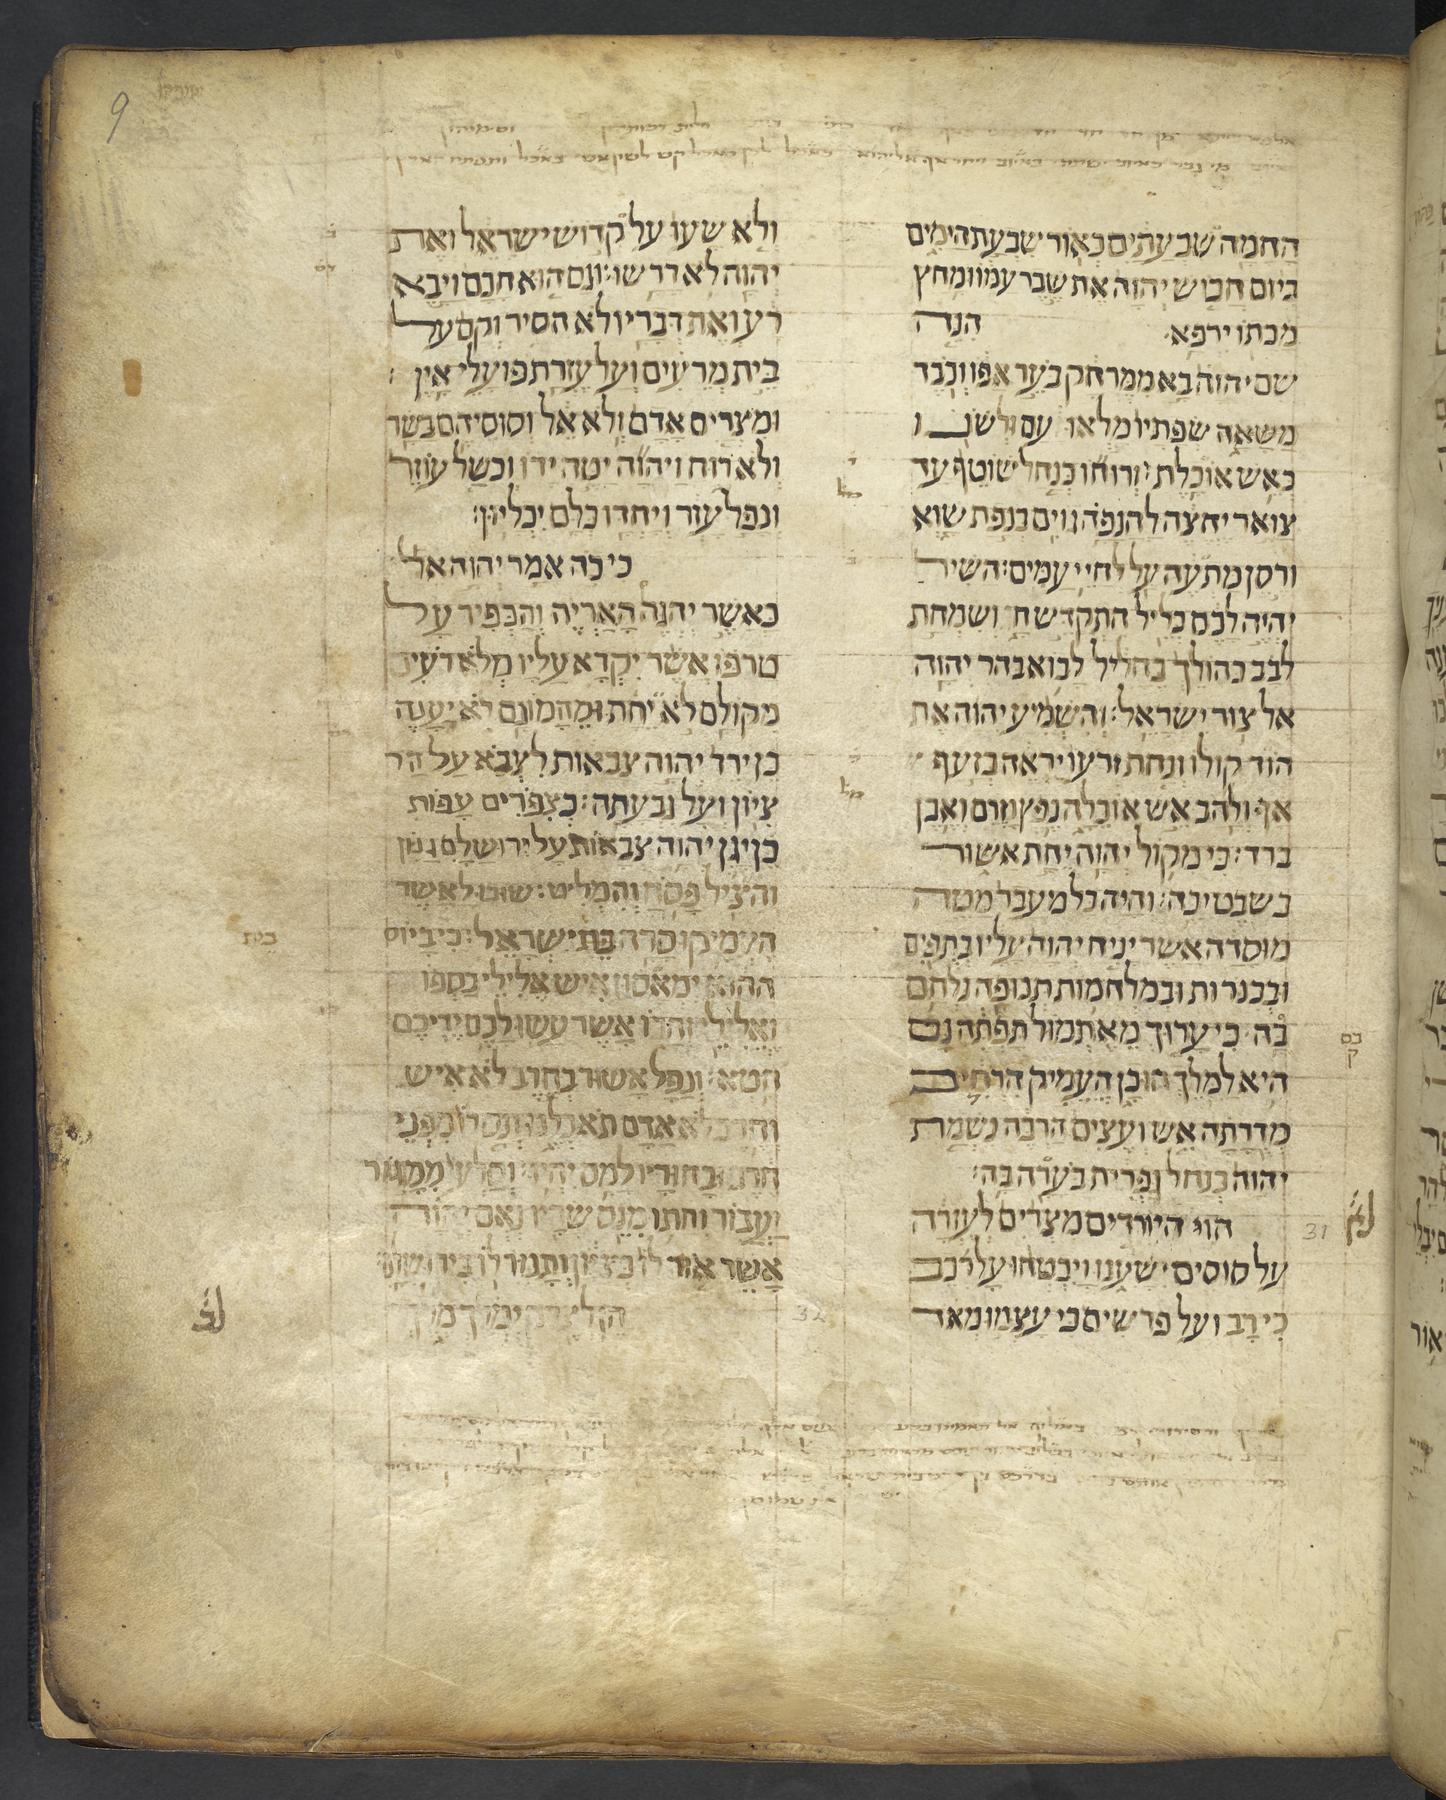 9
החמה שבעתים כאור שבעת הימים
ביום חבוש יהוה את שבר עמו ומחץ
מכתו ירפא׃ הנה
שם יהוה בא ממרחק בער אפו וכבד
משאה שפתיו מלאו זעם ולשונו
כאש אוכלת׃ ורוחו כנחל שוטף עד
צואר יחצה להנפה גוים בנפת שוא
ורסן מתעה על לחיי עמים׃ השיר
יהיה לכם כליל התקדש חג ושמחת
לבב כהולך בחליל לבוא בהר יהוה
אל צור ישראל׃ והשמיע יהוה את
הוד קולו ונחת זרעו יראה בזעף
אף ולהב אש אוכלה נפץ וזרם ואבן
ברד׃ כי מקול יהוה יחת אשור
בשבט יכה׃ והיה כל מעבר מטה
מוסדה אשר יניח יהוה עליו בתפים
ובכנרות ובמלחמות תנופה נלחם
בה׃ כי ערוך מאתמול תפתה גם
היא למלך הוכן העמיק הרחיב
מדרתה אש ועצים הרבה נשמת
יהוה כנחל גפרית בערה בה׃
הוי היורדים מצרים לעזרה
על סוסים ישענו ויבטחו על רכב
כי רב ועל פרשים כי עצמו מאד
בם
ק
לא
31
ולא שעו על קדוש ישראל ואת
יהוה לא דרשו׃ וגם הוא חכם ויבא
רע ואת דבריו לא הסיר וקם על
בית מרעים ועל עזרת פועלי אין׃
ומצרים אדם ולא אל וסוסיהם בשר
ולא רוח ויהוה יטה ידו וכשל עוזר
ונפל עזר ויחדו כלם יכליון׃
כי כה אמר יהוה אלי
כאשר יהגה האריה והכפיר על
טרפו אשר יקרא עליו מלא רעים
מקולם לא יחת ומהמונם לא יענה
כן ירד יהוה צבאות לצבא על הר
ציון ועל גבעתה׃ כצפרים עפות
כן יגן יהוה צבאות על ירושלם גנון
והציל פסח והמליט׃ שובו לאשר
העמיקו סרה בני ישראל׃ כי ביום
ההוא ימאסון איש אלילי כספו
ואלילי זהבו אשר עשו לכם ידיכם
חטא׃ ונפל אשור בחרב לא איש
וחרב לא אדם תאכלנו ונס לו מפני
חרב ובחוריו למס יהיו׃ וסלעו ממגור
יעבור וחתו מנס שריו נאם יהוה
אשר אור לו בציון ותנור לו בירושלם׃
הן לצדק ימלך מלך
בית
לב
32